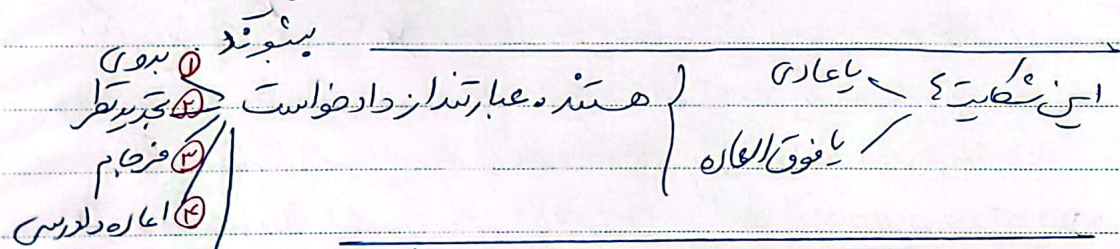 بشوند
این شکایت ؟ یا عادی
یا فوق العاده
هستند. عبارتند از دادخواست
① بدوی
② تجدید نظر
③ فرجام
④ اعاده دادرسی